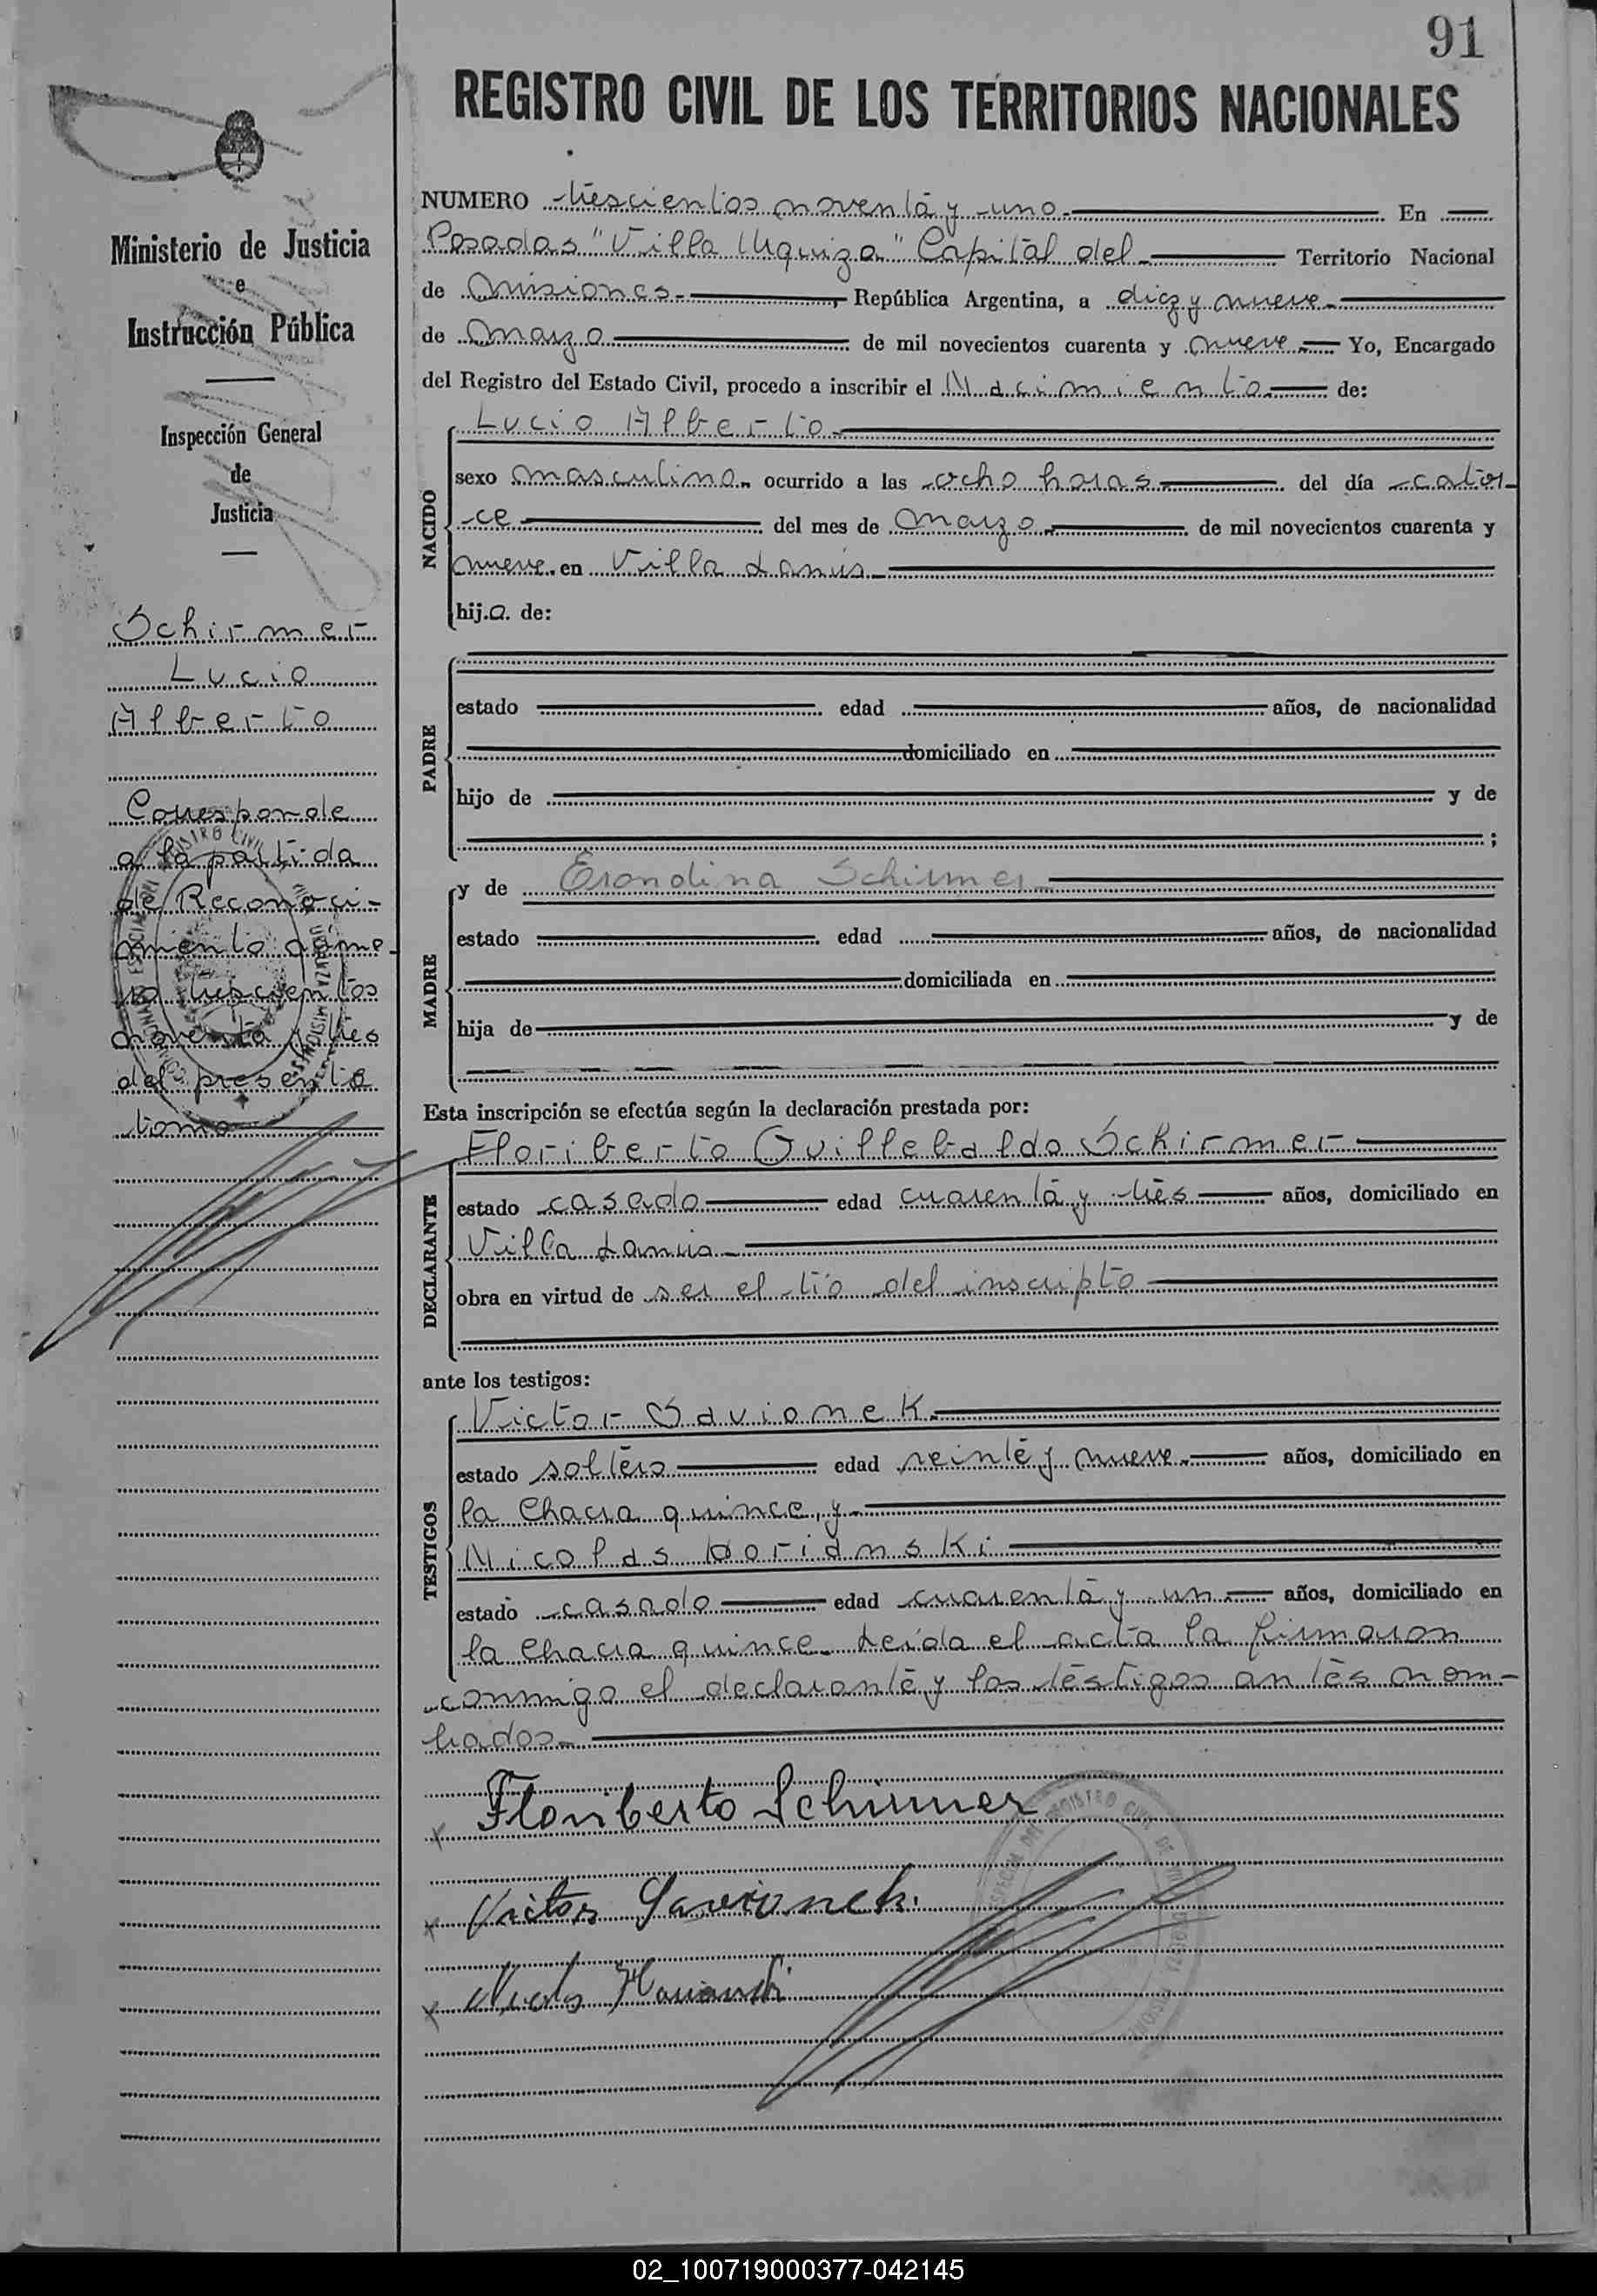 91
REGISTRO CIVIL DE LOS TERRITORIOS NACIONALES
Ministerio de Justicia
e
Instrucción Pública
Inspección General
de
Justicia
Schirmer
Lucio
Alberto
Corresponde
a la partida
de Reconoci-
miento núme-
ro trescientos
noventa y tres
del presente
tomo
NUMERO trescientos noventa y uno. En
Posadas "Villa Urquiza" Capital del Territorio Nacional
de Misiones República Argentina, a diez y nueve
de Marzo de mil novecientos cuarenta y nueve Yo, Encargado
del Registro del Estado Civil, procedo a inscribir el Nacimiento de:
NACIDO
Lucio Alberto
sexo masculino ocurrido a las ocho horas del día cator-
ce del mes de Marzo de mil novecientos cuarenta y
nueve en Villa Lanús
hijo de:
PADRE
estado edad años, de nacionalidad
domiciliado en
hijo de y de
;
MADRE
y de Erondina Schirmer
estado edad años, de nacionalidad
domiciliada en
hija de y de
Esta inscripción se efectúa según la declaración prestada por:
DECLARANTE
Floriberto Guillebaldo Schirmer
estado casado edad cuarenta y tres años, domiciliado en
Villa Lanús
obra en virtud de ser el tío del inscripto
ante los testigos:
TESTIGOS
Victor Savionek
estado soltero edad veinte y nueve años, domiciliado en
la Chacra quince y
Nicolas Horianski
estado casado edad cuarenta y un años, domiciliado en
la Chacra quince. Leída el acta la firmaron
conmigo el declarante y los testigos antes nom-
brados
x Floriberto Schirmer
x Victor Savionek
x
02_100719000377-042145